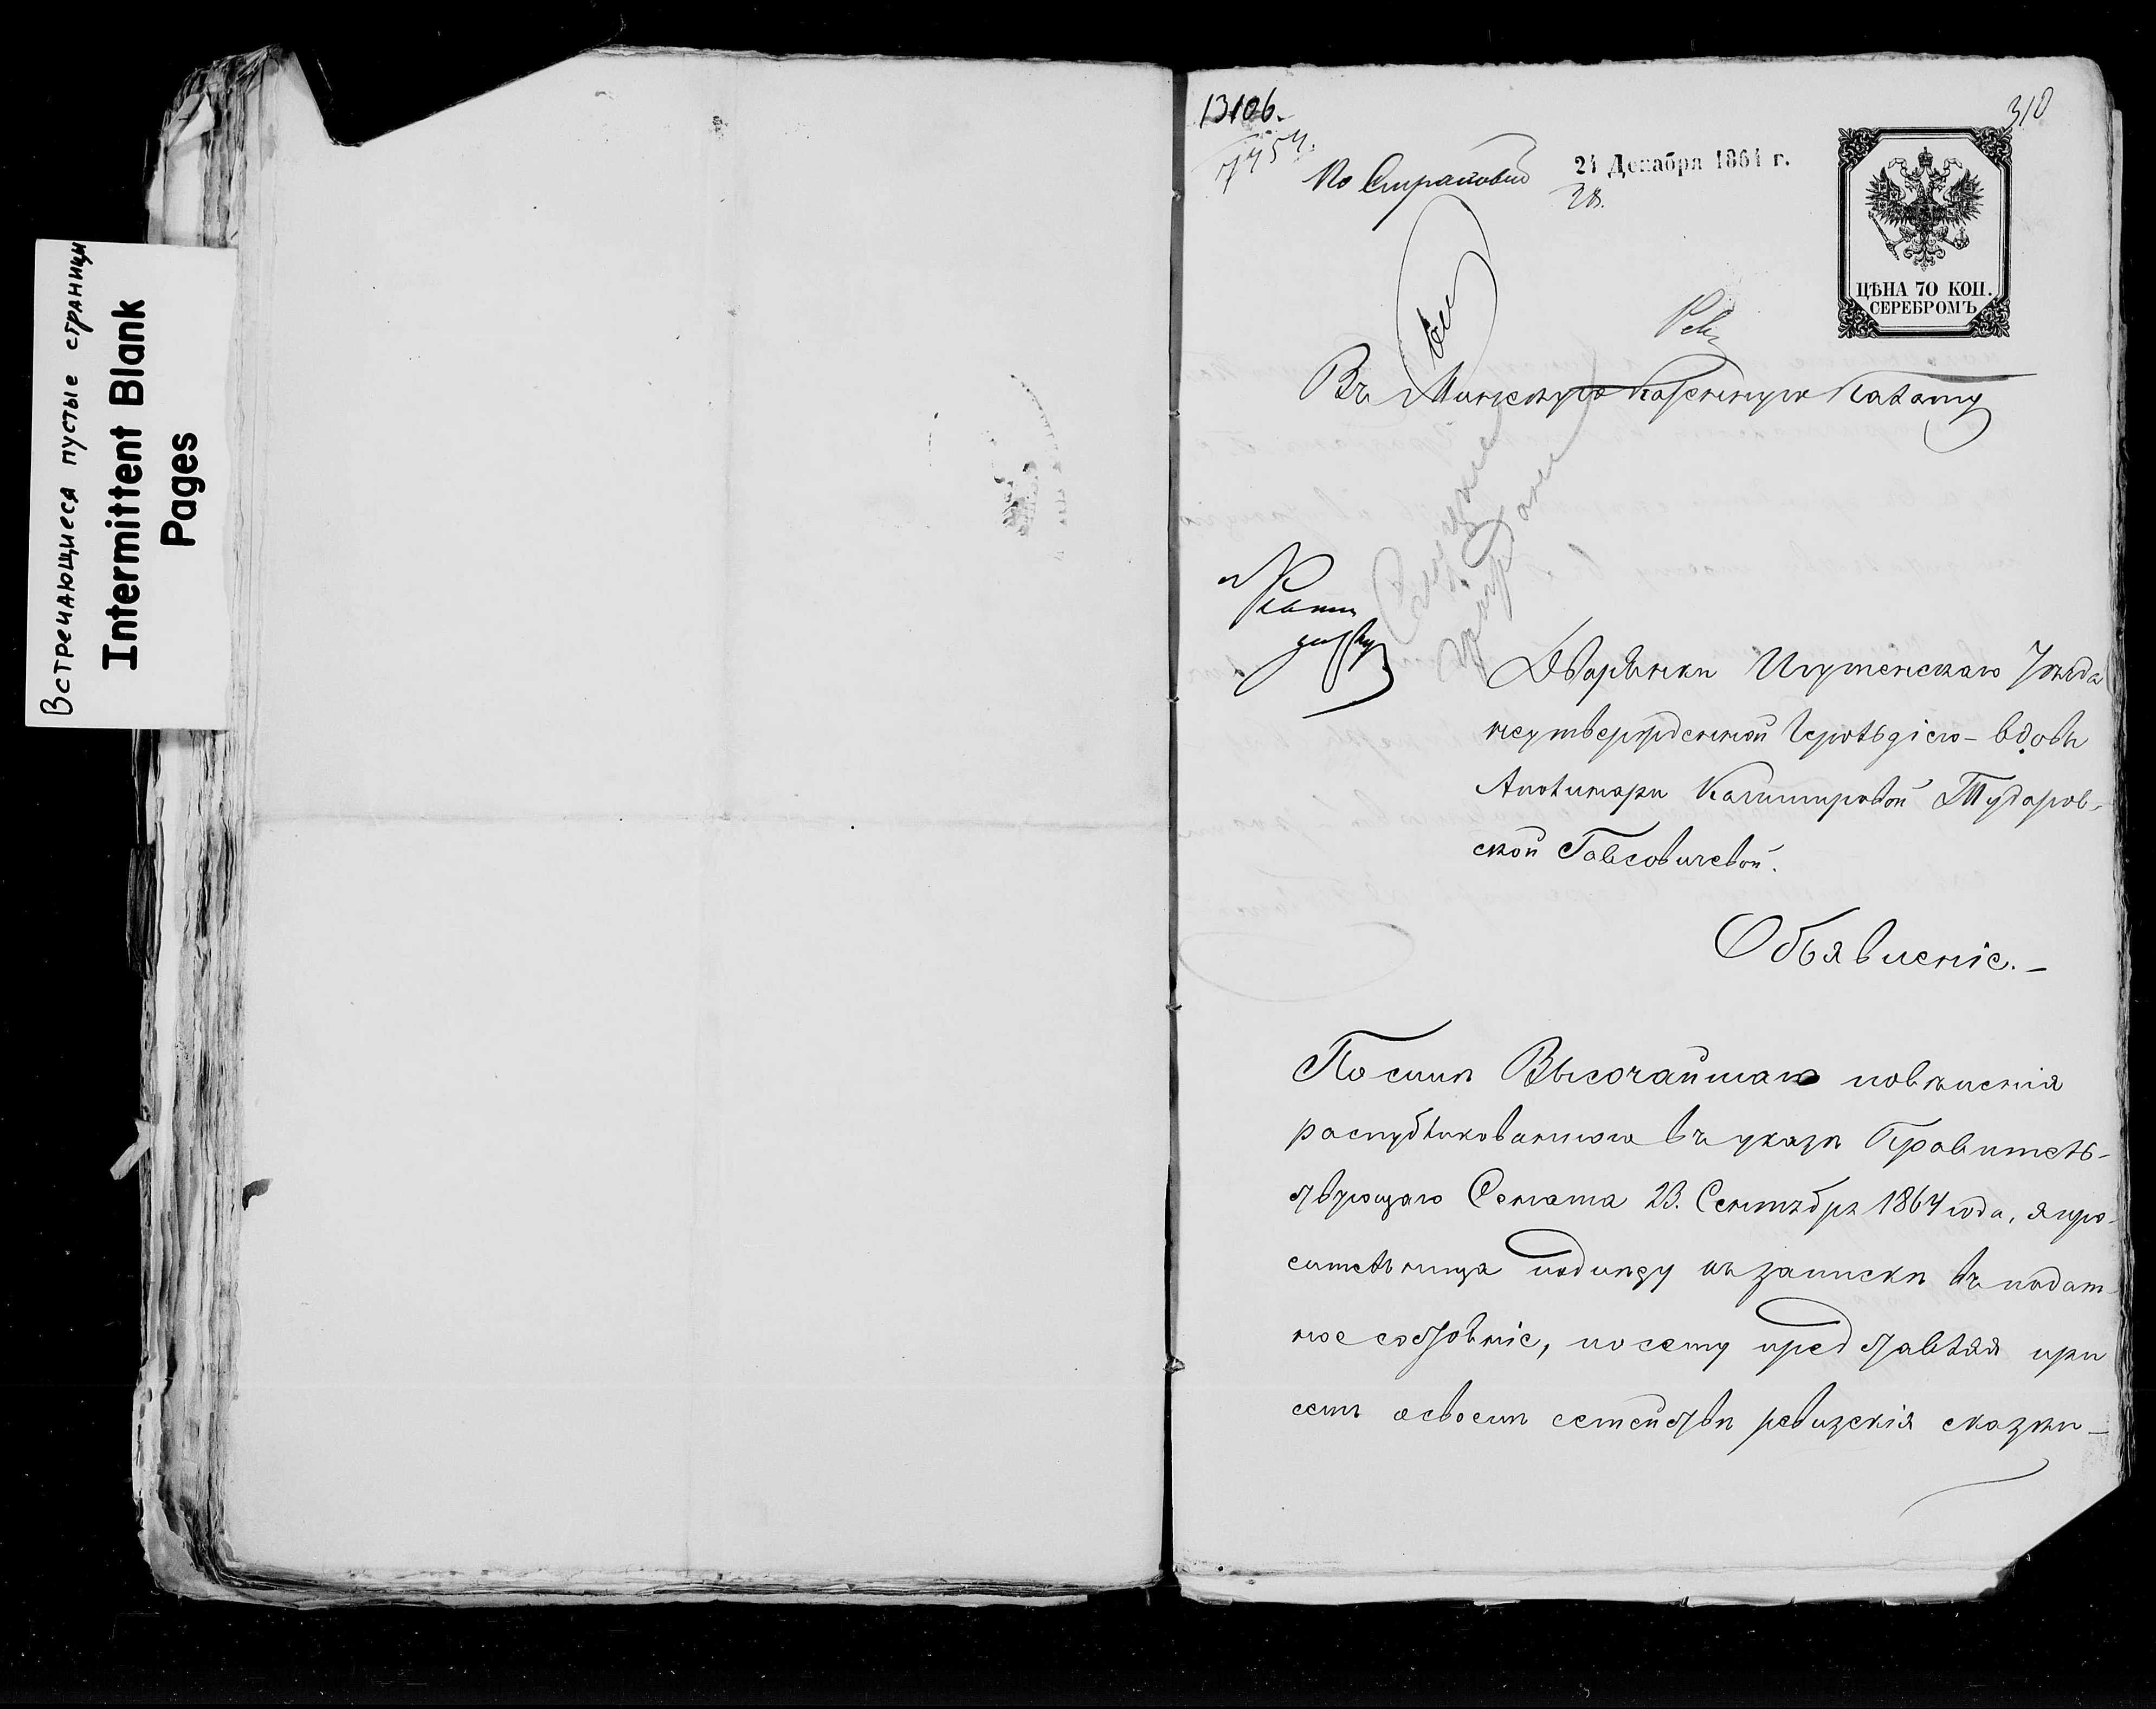 Встречающиеся пустые страницы
Intermittent Blank
Pages
13106.
310
7454.
По Страповой
21 Декабря 1864 г.
ЦѢНА 70 КОП.
СЕРЕБРОМЪ
Рев
Въ Минскую Казенную Палату
Дворянки Игуменскаго Уѣзда
неутвержденной Герольдіею - вдовы
Аполинаріи Казиміровой Тударов-
ской Гавсовичевой.
Объявленіе. -
По силѣ Высочайшаго повѣленія
распубликованнаго въ указѣ Правитель-
ствующаго Сената 23. Сентября 1864 года, я про-
сительница подлежу къ запискѣ въ подат-
ное сословіе, по сему представляя при
семъ о своемъ семействѣ ревизскія сказки -